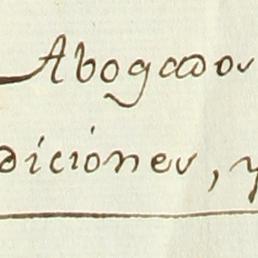 Abogados
diciones, y